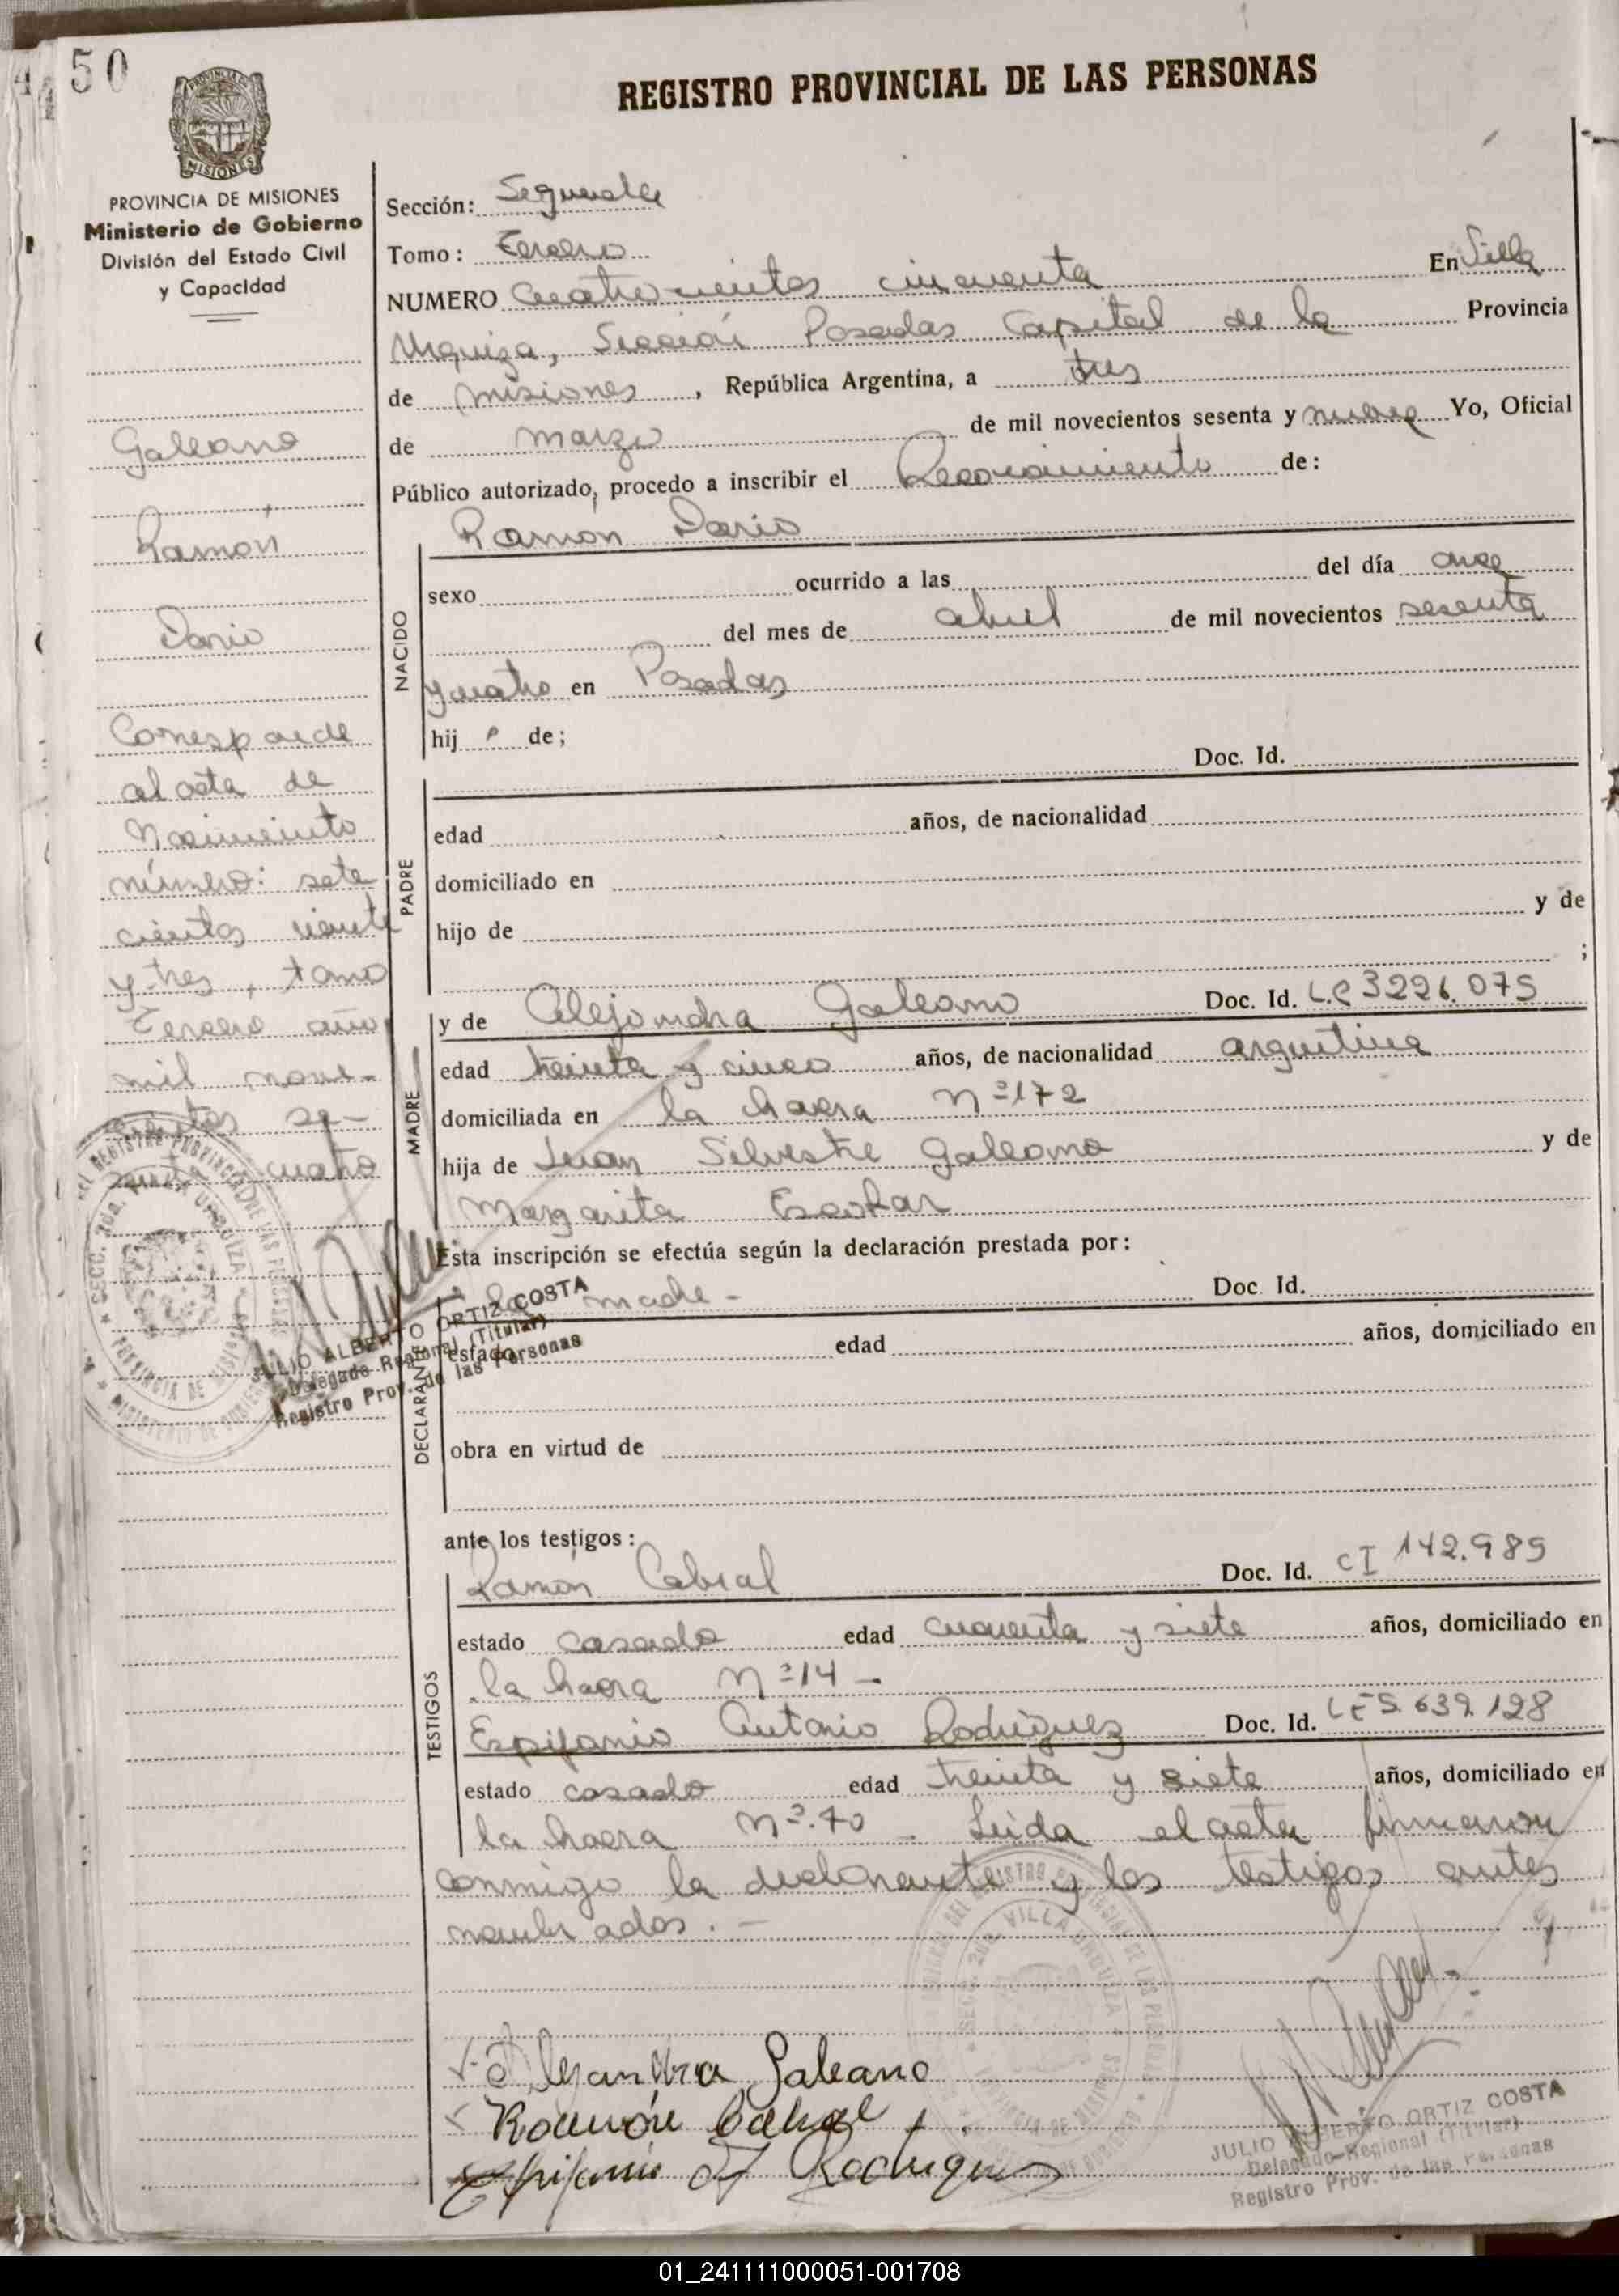 4
50
REGISTRO PROVINCIAL DE LAS PERSONAS
PROVINCIA DE MISIONES
Ministerio de Gobierno
División del Estado Civil
y Capacidad
Galeano
Ramón
Dario
Corresponde
al acta de
Nacimiento
número: sete
cientos viente
y tres, tomo
Tercero año
mil nove-
cientos se-
senta cuatro
JULIO ALBERTO ORTIZ COSTA
Delegado Regional (Titular)
Registro Prov. de las Personas
Sección: Segunda
Tomo: Tercero
NUMERO Cuatrocientos cincuenta En Villa
Urquiza, Sección Posadas Capital de la Provincia
de misiones, República Argentina, a tres
de marzo de mil novecientos sesenta y nueve Yo, Oficial
Público autorizado, procedo a inscribir el Reconocimiento de:
Ramón Dario
NACIDO
sexo ocurrido a las del día once
del mes de abril de mil novecientos sesenta
y cuatro en Posadas
hij o de;
PADRE
Doc. Id.
edad años, de nacionalidad
domiciliado en
hijo de y de
;
MADRE
y de Alejandra Galeano Doc. Id. L.C 3226.075
edad treinta y cinco años, de nacionalidad argentina
domiciliada en la chacra Nº 172
hija de Juan Silvestre Galeano y de
Margarita Escobar
Esta inscripción se efectúa según la declaración prestada por:
DECLARANTE
la madre - Doc. Id.
estado edad años, domiciliado en
obra en virtud de
ante los testigos:
TESTIGOS
Ramón Cabral Doc. Id. CI 142.989
estado casado edad cuarenta y siete años, domiciliado en
la chacra Nº 14 -
Espifanio Antonio Rodriguez Doc. Id. LE 5.639.128
estado casado edad treinta y siete años, domiciliado en
la chacra Nº. 70 - Leida el acta firmaron
conmigo la declarante y los testigos antes
nombrados. -
Alejandra Galeano
Ramón Cabral
Epifanio A Rodrigues
JULIO ALBERTO ORTIZ COSTA
Delegado Regional (Titular)
Registro Prov. de las Personas
01_241111000051-001708